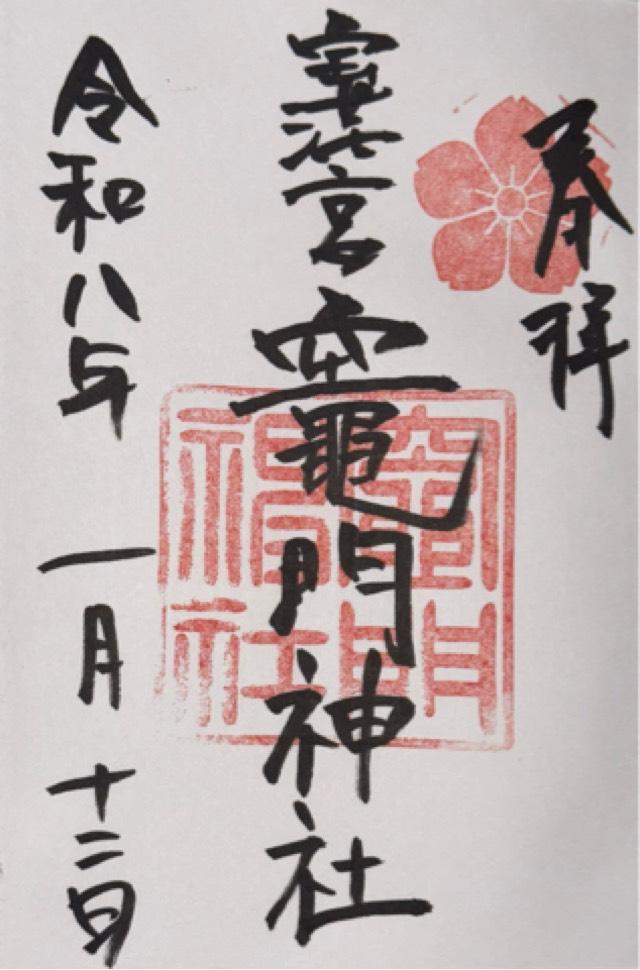 奉拝
寳満宮 竈門神社
令和八年 一月 十二日
竈門
神社